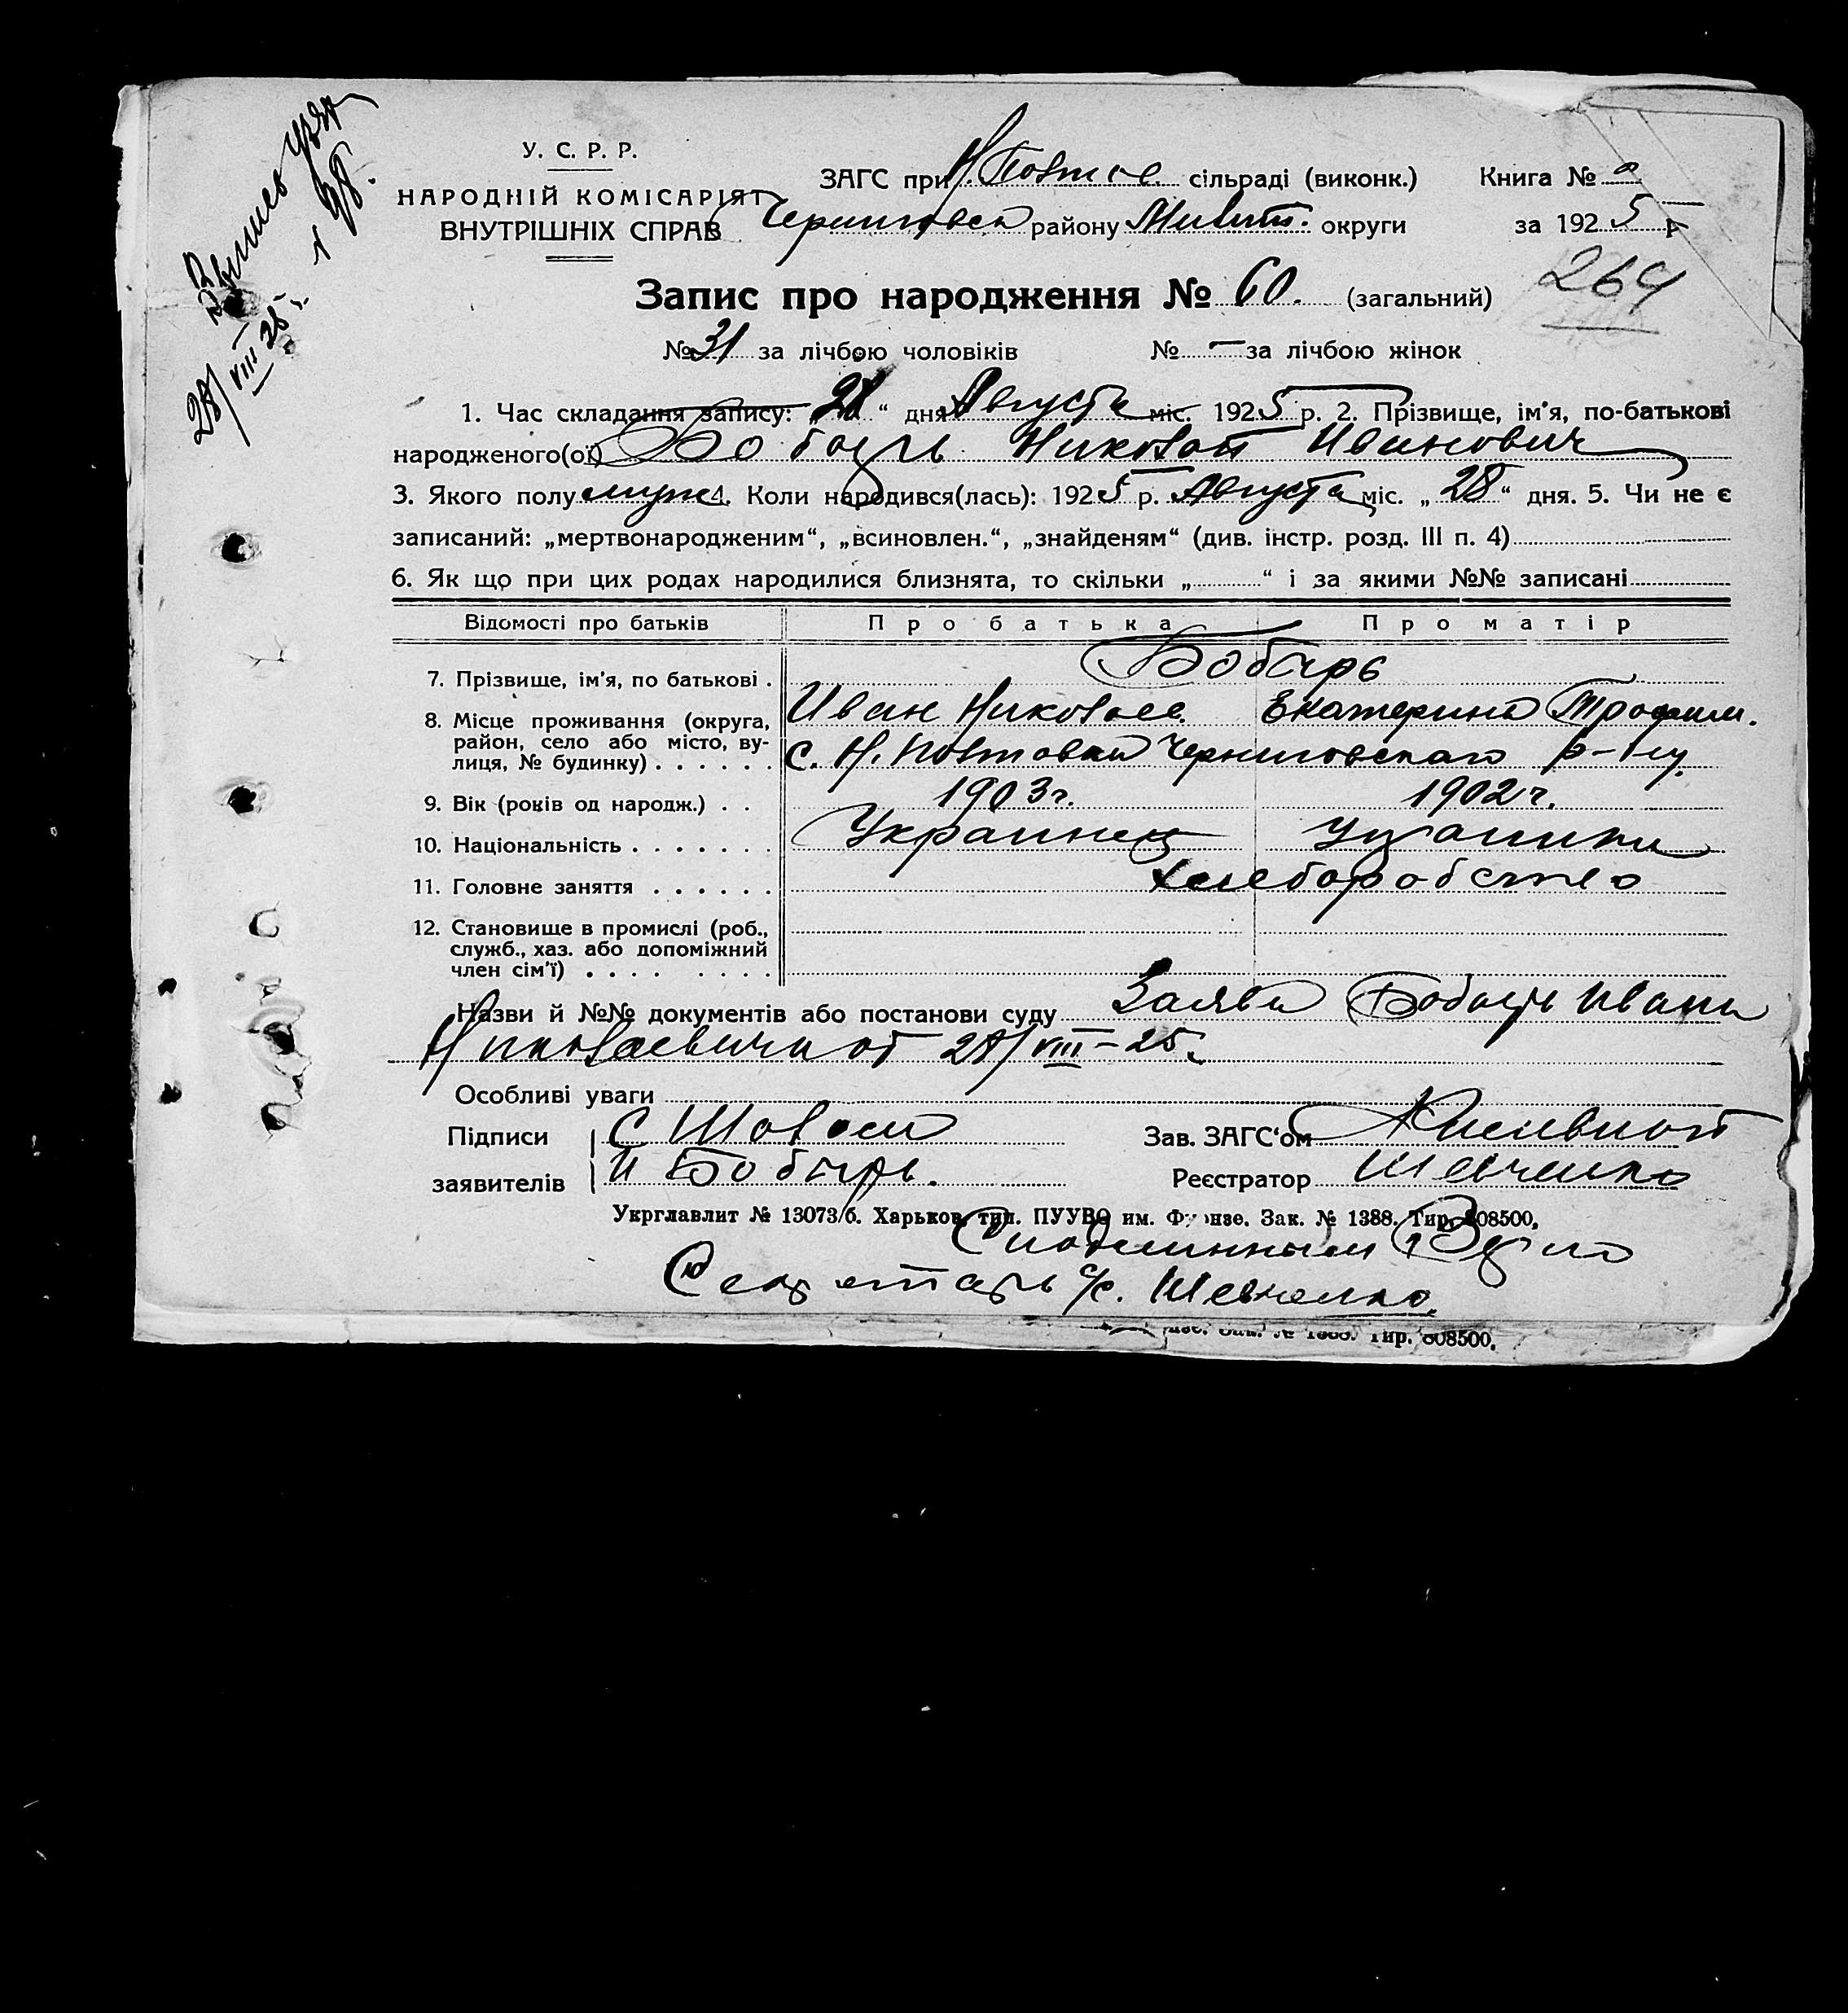 У. С. Р. Р.
НАРОДНІЙ КОМІСАРІЯТ
ВНУТРІШНІХ СПРАВ
28/VIII 25 г.
ЗАГС при Н. Полтов. сільраді (виконк.)
Черниговск району Мелит. округи
Книга №
за 1925 р
264
Запис про народження № 60. (загальний)
№ 31 за лічбою чоловіків № — за лічбою жінок
1. Час складання запису: „28“ дня Августа міс. 1925 р. 2. Прізвище, ім'я, по-батькові
народженого(ої) Бобырь Николай Иванович
3. Якого полу муж 4. Коли народився(лась): 1925 р. Августа міс. „28“ дня. 5. Чи не є
записаний: „мертвонародженим“, „всиновлен.“, „знайденям“ (див. інстр. розд. III п. 4)
6. Як що при цих родах народилися близнята, то скільки „ “ і за якими №№ записані
Відомості про батьків Про батька Про матір
7. Прізвище, ім'я, по батькові . Бобырь
Иван Николаев. Екатерина Трофим.
8. Місце проживання (округа,
район, село або місто, ву-
лиця, № будинку) . . . . . . с. Н. Полтовка Черниговскаго р-ну.
9. Вік (років од народж.) . . 1903 г. 1902 г.
10. Національність . . . . . . . Украинец Украинка
11. Головне заняття . . . . . . Хлеборобство
12. Становище в промислі (роб.,
служб., хаз. або допоміжний
член сім'ї) . . . . . . . .
Назви й №№ документів або постанови суду Заява Бобырь Ивана
Николаевича от 28/VIII–25 г.
Особливі уваги
Підписи
заявителів И Бобырь.
Зав. ЗАГС'ом
Реєстратор Шевченко
Укрглавлит № 13073/б. Харьков, тип. ПУУВО им. Фрунзе. Зак. № 1388. Тир. 808500.
С подлинным верно
Секретарь с/с. Шевченко.
Тир. 808500.